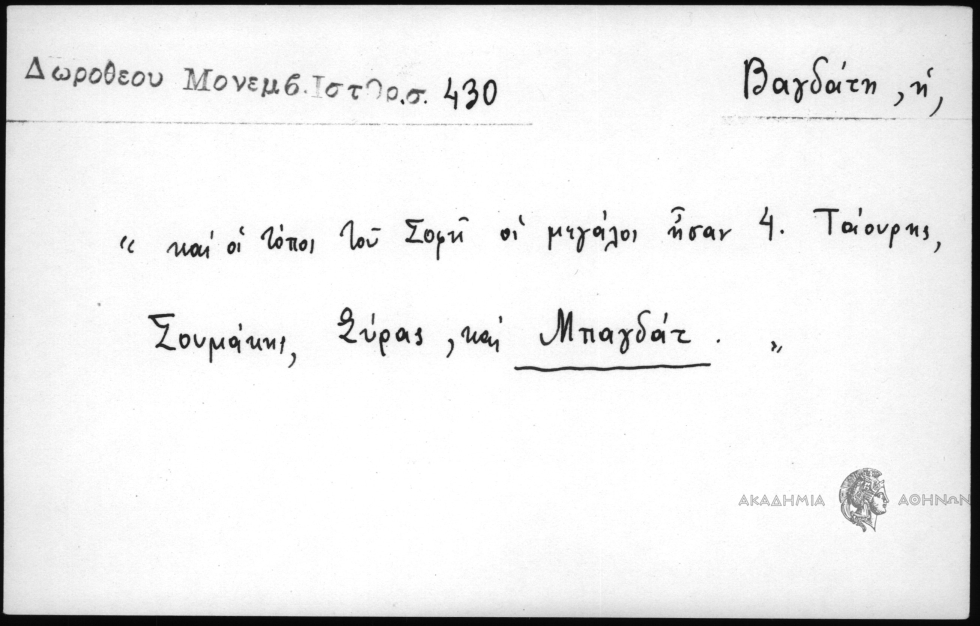 Δωροθεου Μονεμβ. Ιστορ. σ. 430
Βαγδάτη, ἡ,
“ καί οἱ τόποι τοῦ Σοφῆ οἱ μεγάλοι ἦσαν 4. Ταουρης,
Σουμάκης, Σύρας, καί Μπαγδάτ. „
ΑΚΑΔΗΜΙΑ ΑΘΗΝΩΝ